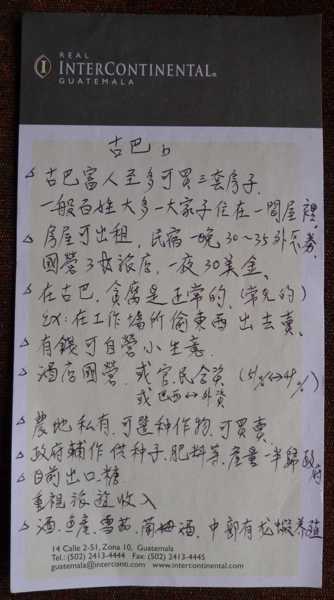 REAL
INTERCONTINENTAL®
GUATEMALA
古巴 b
△ 古巴富人至多可買三套房子.
一般百姓大多一大家子住在一間屋裡
△ 房屋可出租, 民宿一晚 30~35外匯券
國營3招旅店, 一夜 30美金.
△ 在古巴, 貪腐是正常的. (常見的)
ex: 在工作場所偷東西出去賣.
△ 有錢可自營小生意.
△ 酒店國營, 或官民合資 (51%↔49%)
或 巴西↔外資
△ 農地私有, 可選種作物, 可買賣.
△ 政府輔作 供種子.肥料等, 產量一半歸政府
△ 目前出口糖
重視旅遊收入
△ 酒, 雪茄, 蘭姆酒, 中部有龙蝦養殖
14 Calle 2-51, Zona 10, Guatemala
Tel.: (502) 2413-4444 Fax: (502) 2413-4445
guatemala@interconti.com www.intercontinental.com